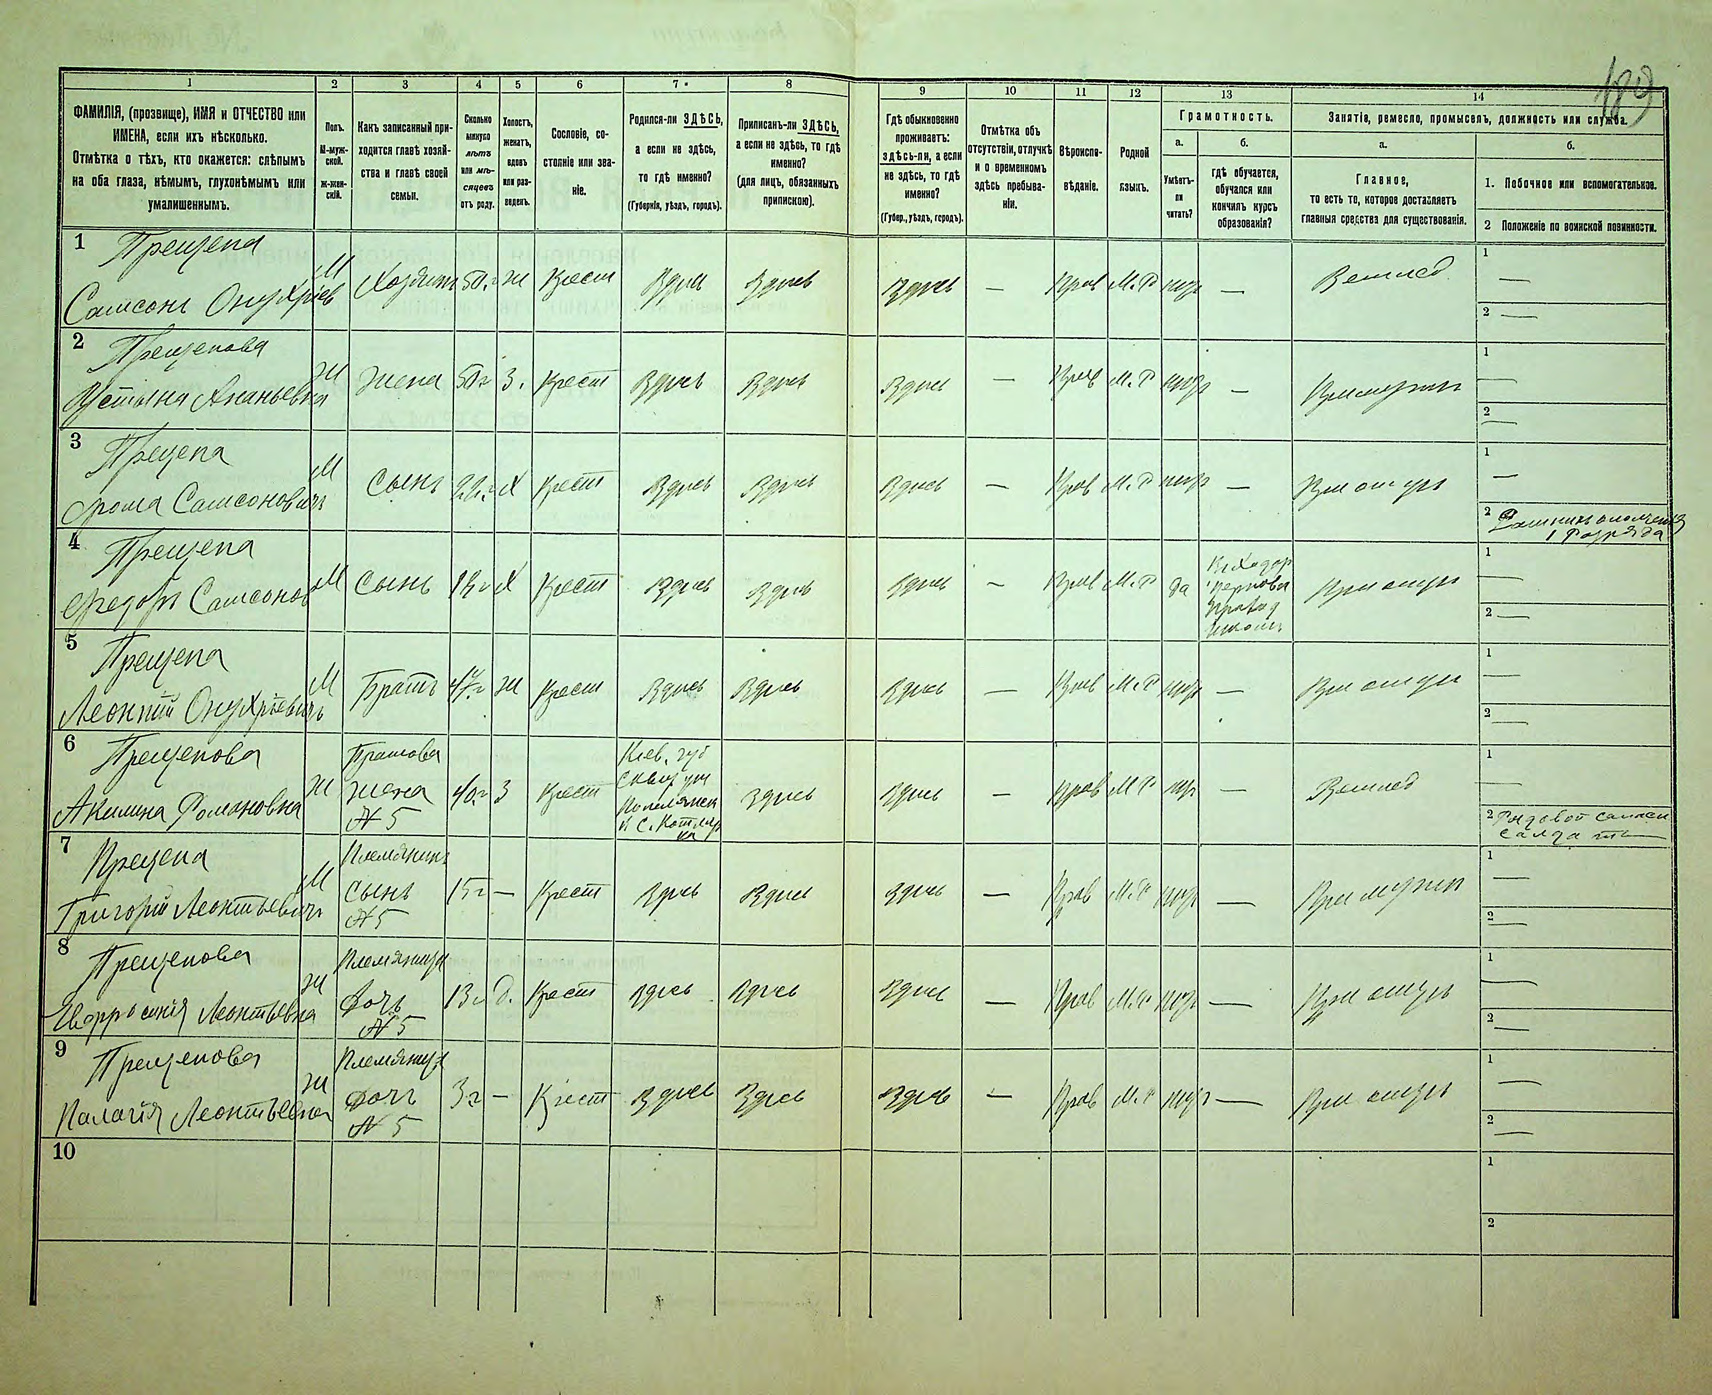 189
1 2 3 4 5 6 7 8 9 10 11 12 13 14
ФАМИЛІЯ, (прозвище), ИМЯ и ОТЧЕСТВО или
ИМЕНА, если ихъ нѣсколько.
Отмѣтка о тѣхъ, кто окажется: слѣпымъ
на оба глаза, нѣмымъ, глухонѣмымъ или
умалишеннымъ.
Полъ.
М-муж-
ской.
Ж-жен-
скій.
Какъ записанный при-
ходится главѣ хозяй-
ства и главѣ своей
семьи.
Сколько
минуло
лѣтъ
или мѣ-
сяцевъ
отъ роду.
Холостъ,
женатъ,
вдовъ
или раз-
веденъ.
Сословіе, со-
стояніе или зва-
ніе.
Родился-ли ЗДѢСЬ,
а если не здѣсь,
то гдѣ именно?
(Губернія, уѣздъ, городъ).
Приписанъ-ли ЗДѢСЬ,
а если не здѣсь, то гдѣ
именно?
(для лицъ, обязанныхъ
припиской).
Гдѣ обыкновенно
проживаетъ:
здѣсь-ли, а если
не здѣсь, то гдѣ
именно?
(Губер., уѣздъ, городъ).
Отмѣтка объ
отсутствіи, отлучкѣ
и о временномъ
здѣсь пребыва-
ніи.
Вѣроиспо-
вѣданіе.
Родной
языкъ.
Грамотность.
а.
Умѣетъ-
ли
читать?
б.
гдѣ обучается,
обучался или
кончилъ курсъ
образованія?
Занятіе, ремесло, промыселъ, должность или служба.
а.
Главное,
то есть то, которое доставляетъ
главныя средства для существованія.
б.
1. Побочное или вспомогательное.
2 Положеніе по воинской повинности.
1 Прещепа
Самсонъ Онуфріев М Хозяинъ 50 г ж Крест Здесь Здесь Здесь — Прав М.Р нет — Землед
1 —
2 —
2 Прещепова
Устина Ананьевна Ж жена 50 г З. Крест Здесь Здесь Здесь — Прав М.Р нет —
1 —
2 —
3 Прещепа
Фома Самсоновичъ М Сынъ 22 г Х Крест Здесь Здесь Здесь — Прав М.Р нет — При отцѣ
1 —
2 Ратникъ ополчен
1 Разряда
4 Прещепа
Федоръ Самсонов М Сынъ 13 г Х Крест Здесь Здесь Здесь — Прав М.Р да При отцѣ
1 —
2 —
5 Прещепа
Леонтій Онуфріевичъ М Братъ ж Крест Здесь Здесь Здесь — Прав М.Р нет —
1 —
2 —
6 Прещепова
Акилина Романовна Ж Братова
жена
№ 5 40 г З Крест Кіев. губ
Сквир у
Здесь Здесь — Прав М.Р нет — Землед
1 —
2 Рядовой
7 Прещепа
Григорій Леонтьевичъ М Племяникъ
Сынъ
№ 5 15 г — Крест Здесь Здесь Здесь — Прав М.Р нет —
1 —
2 —
8 Прещепова
Евфросинія Леонтьевна Ж Племяница
дочь
№ 5 13 г д. Крест Здесь Здесь Здесь — Прав М.Р нет — При отцѣ
1 —
2 —
9 Прещепова
Палагія Леонтьевна Ж Племяница
дочь
№ 5 3 г — Крест Здесь Здесь Здесь — Прав М.Р нет — При отцѣ
1 —
2 —
10
1
2